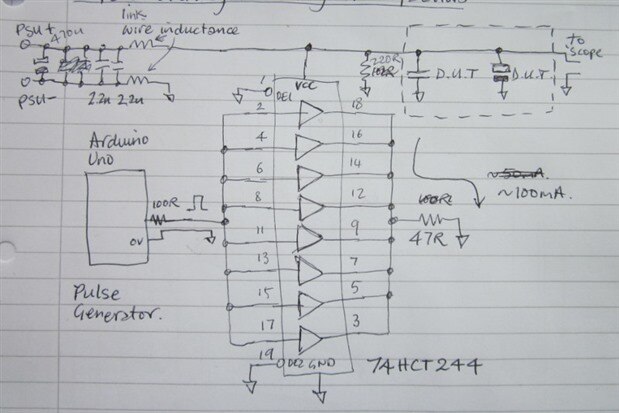 link
wire inductance
PSU+
470u
PSU-
2.2u 2.2u
220R
D.U.T
D.U.T
To
'scope
Vcc
1
OE1
2
18
4
16
6
14
8
12
11
9
13
7
15
5
17
3
19
OE2 GND
74HCT244
Arduino
Uno
100R
0V
Pulse
Generator.
~50mA.
~100mA.
100R
47R